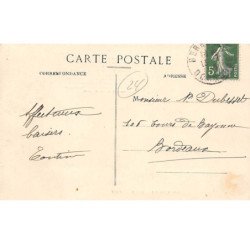 CARTE POSTALE
CORRESPONDANCE
ADRESSE
24
5
Affectueux
baisers
Monsieur P. Debesset
Cours de Bayonne
Bordeaux